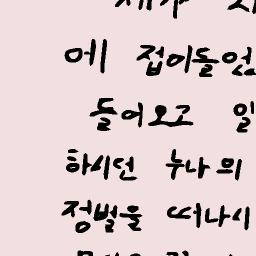 에 접어들었
들어오고 일
하시던 누나의
정벌을 떠나시